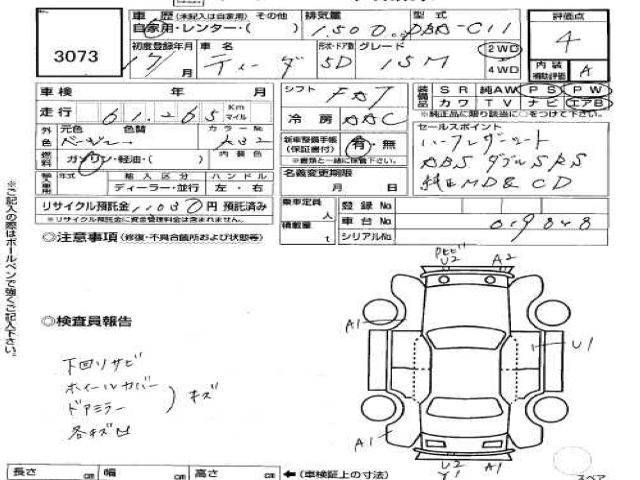 車歴 (未記入は自家用) その他 排気量 型式 評価点
3073 自家用・レンター・( ) 1,500 DBA-C11 4
初度登録年月 車名 形状・ドア数 グレード 2WD
17年 月 ティーダ 5D 15M 4WD 内装補助評価 A
車検 年 月 シフト FAT 装備品 SR 純AW PS PW
走行 61,265 Km マイル 冷房 AAC カワ TV ナビ エアB
※純正品に限り該当に○をつけて下さい。
外色 元色 色替 カラーNo 新車整備手帳(保証書付) 有・無 セールスポイント
ベージュー ハーフレザーシート
燃料 ガソリン・軽油・( ) 内装色 ※書類と一緒に保管下さい。 ABS ダブルSRS
輸入車用 年式 輸入区分 ハンドル 名義変更期限 純正MD&CD
ディーラー・並行 左・右 月 日
リサイクル預託金 11,030円 預託済み 乗車定員 人 登録No
※リサイクル預託金に資金管理料金は含まれません。 積載量 t 車台No 019848
シリアルNo
◎注意事項 (修復・不具合箇所および状態等)
U2 A2
A1
◎検査員報告
U1
下回りサビ
ホイールカバー
ドアミラー
キズ
各キズ凹
A1
U2 A1
Y1
長さ cm 幅 cm 高さ cm ←(車検証上の寸法)
スペア
※ご記入の際はボールペンで強くご記入下さい。